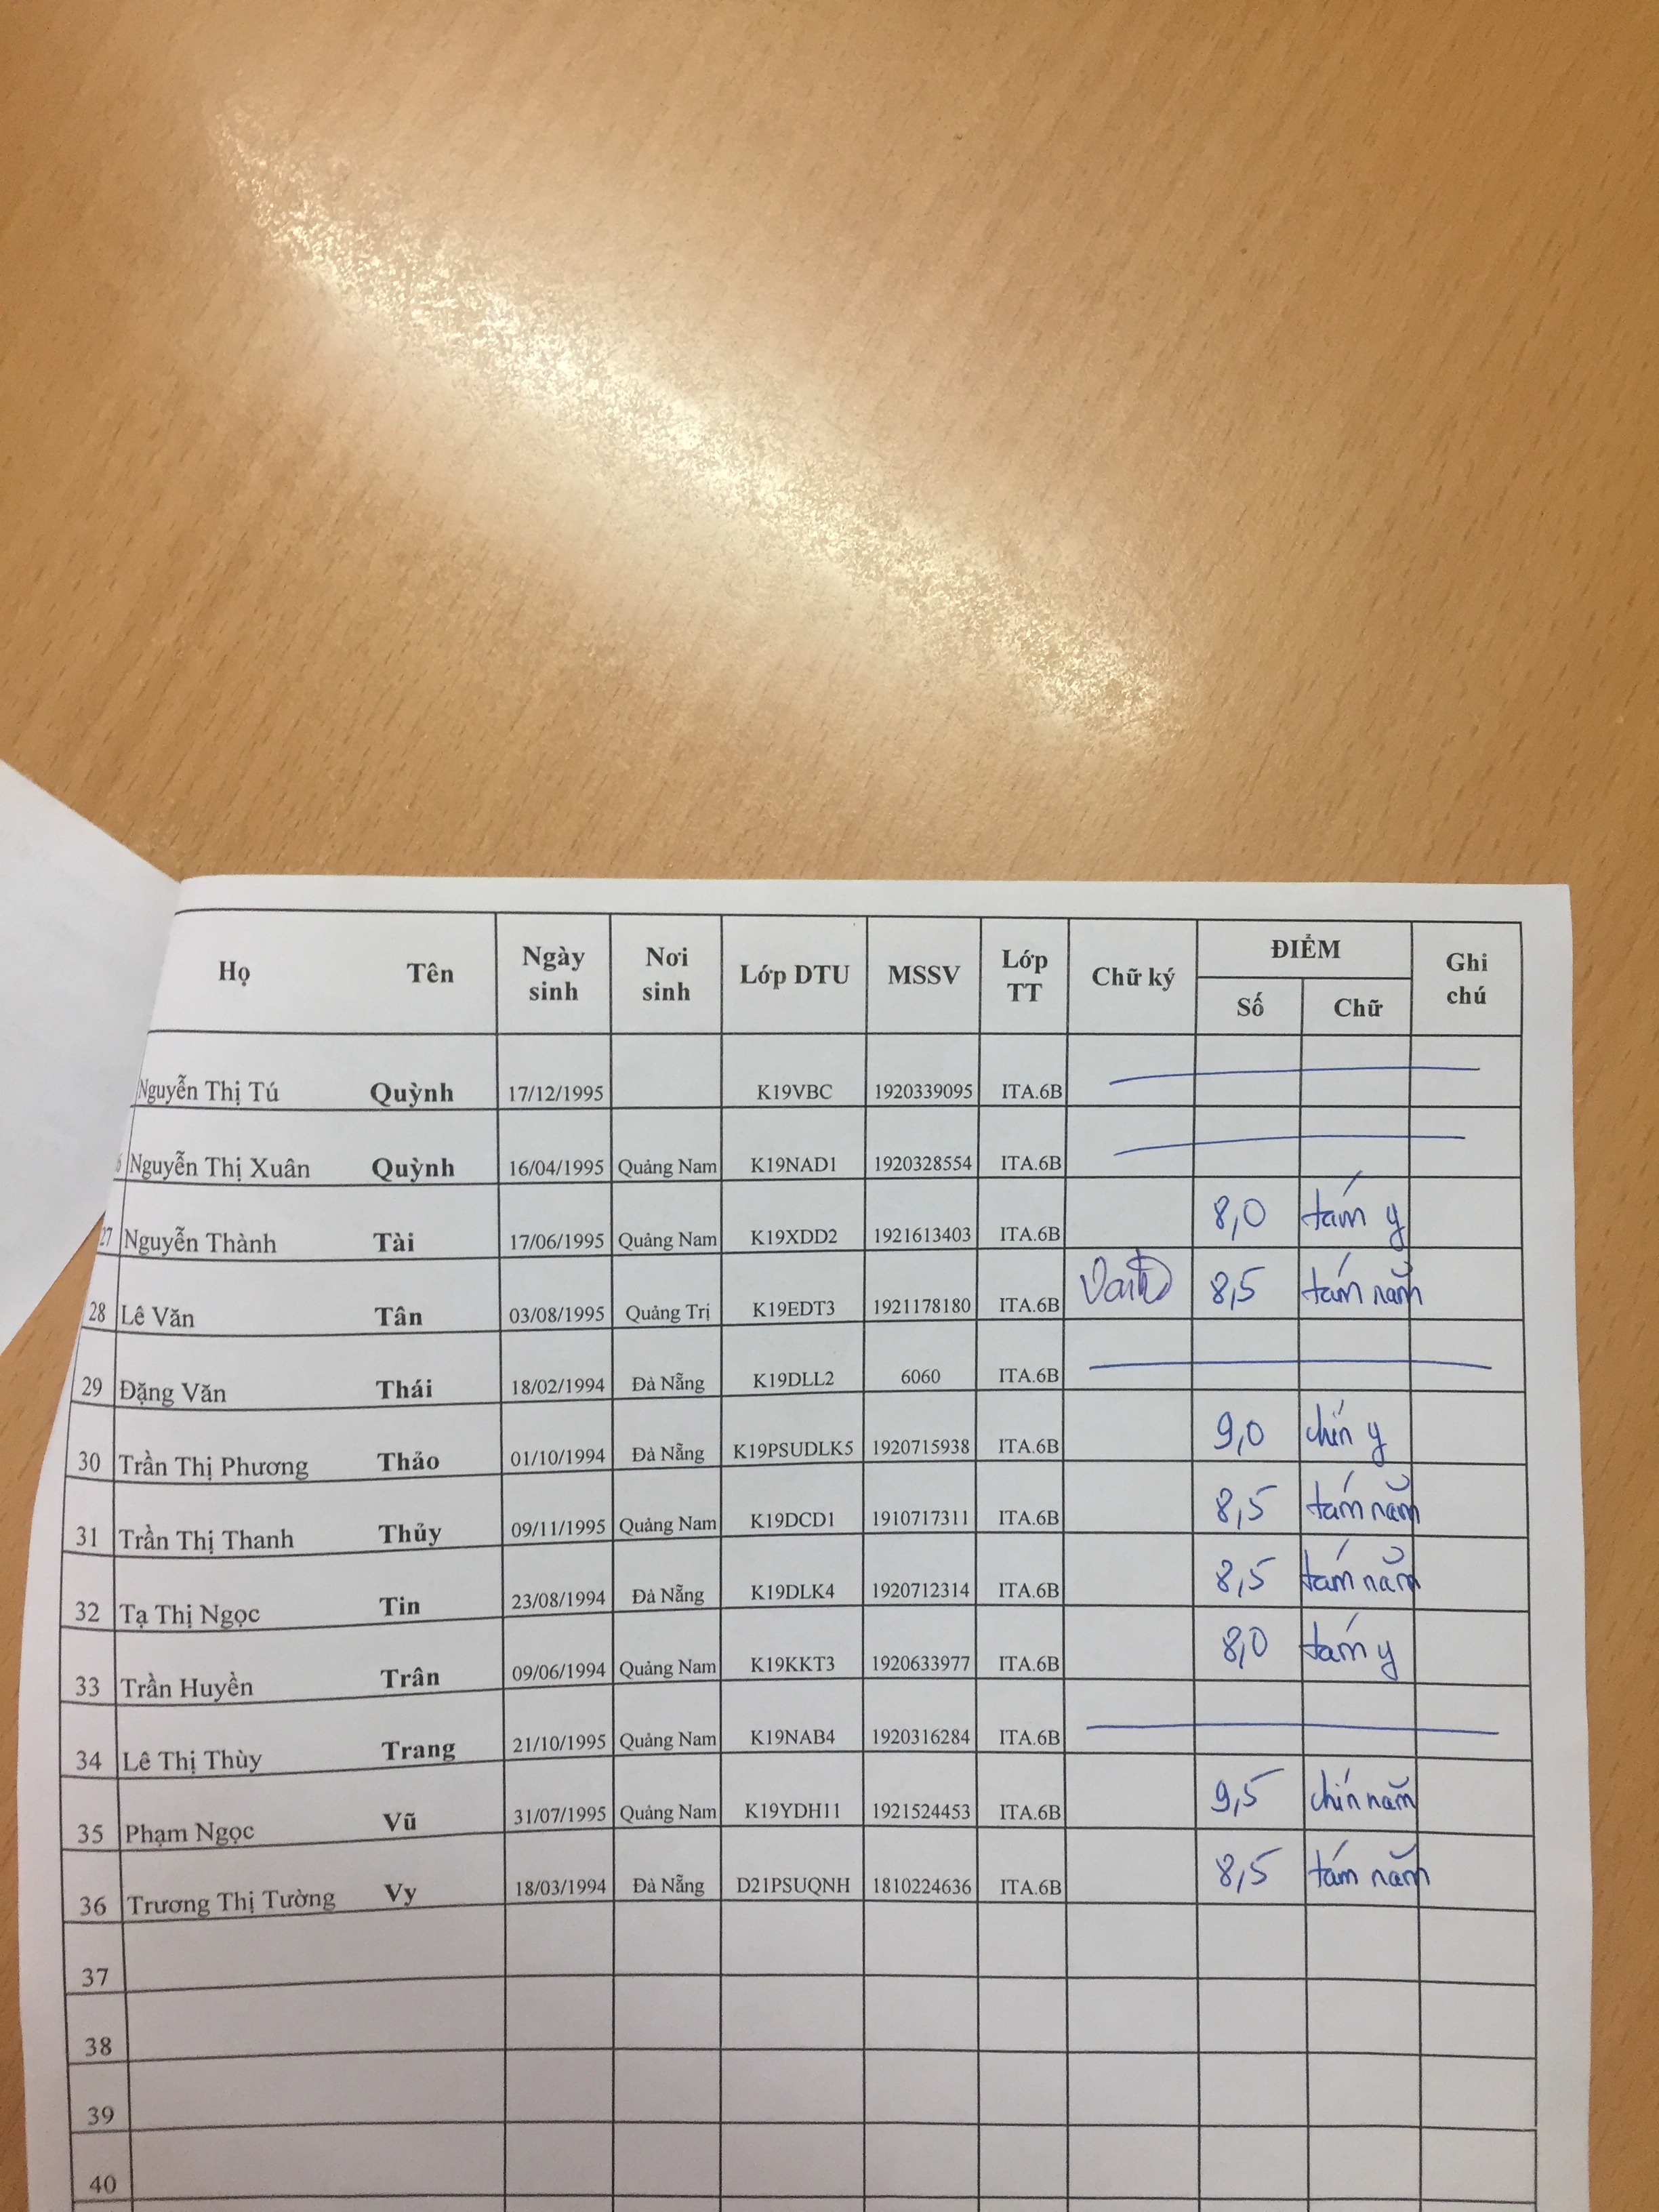 Họ Tên Ngày sinh Nơi sinh Lớp DTU MSSV Lớp TT Chữ ký ĐIỂM Số Chữ Ghi chú
Nguyễn Thị Tú Quỳnh 17/12/1995 K19VBC 1920339095 ITA.6B
6 Nguyễn Thị Xuân Quỳnh 16/04/1995 Quảng Nam K19NAD1 1920328554 ITA.6B
27 Nguyễn Thành Tài 17/06/1995 Quảng Nam K19XDD2 1921613403 ITA.6B 8,0 tám y
28 Lê Văn Tân 03/08/1995 Quảng Trị K19EDT3 1921178180 ITA.6B 8,5 tám năm
29 Đặng Văn Thái 18/02/1994 Đà Nẵng K19DLL2 6060 ITA.6B
30 Trần Thị Phương Thảo 01/10/1994 Đà Nẵng K19PSUDLK5 1920715938 ITA.6B 9,0 chín y
31 Trần Thị Thanh Thủy 09/11/1995 Quảng Nam K19DCD1 1910717311 ITA.6B 8,5 tám năm
32 Tạ Thị Ngọc Tin 23/08/1994 Đà Nẵng K19DLK4 1920712314 ITA.6B 8,5 tám năm
33 Trần Huyền Trân 09/06/1994 Quảng Nam K19KKT3 1920633977 ITA.6B 8,0 tám y
34 Lê Thị Thùy Trang 21/10/1995 Quảng Nam K19NAB4 1920316284 ITA.6B
35 Phạm Ngọc Vũ 31/07/1995 Quảng Nam K19YDH11 1921524453 ITA.6B 9,5 chín năm
36 Trương Thị Tường Vy 18/03/1994 Đà Nẵng D21PSUQNH 1810224636 ITA.6B 8,5 tám năm
37
38
39
40